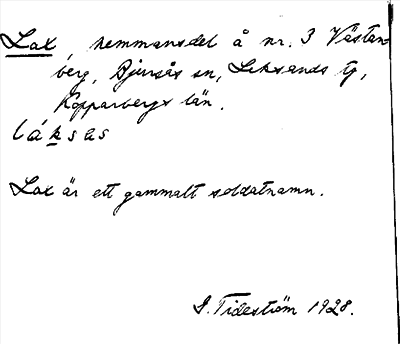 Lax, hemmansdel å nr. 3 Västan-
berg, Bjursås sn, Leksands tg,
Kopparbergs län.
láksas
Lax är ett gammalt soldatnamn.
I. Tideström 1928.